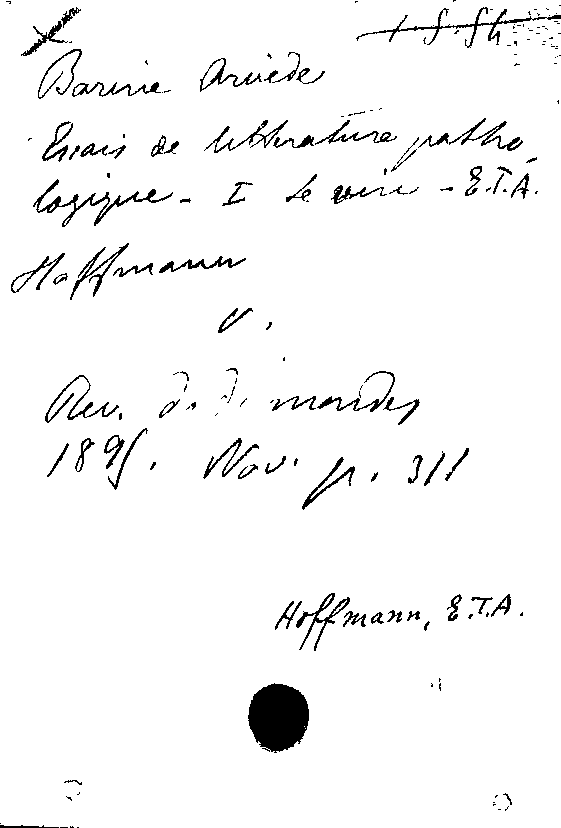 Barine Arvède
Essais de littérature patho-
logique - I Le vin - E.T.A.
Hoffmann
v.
Rev. d. d. mondes
1895. Nov. p. 311
Hoffmann, E.T.A.